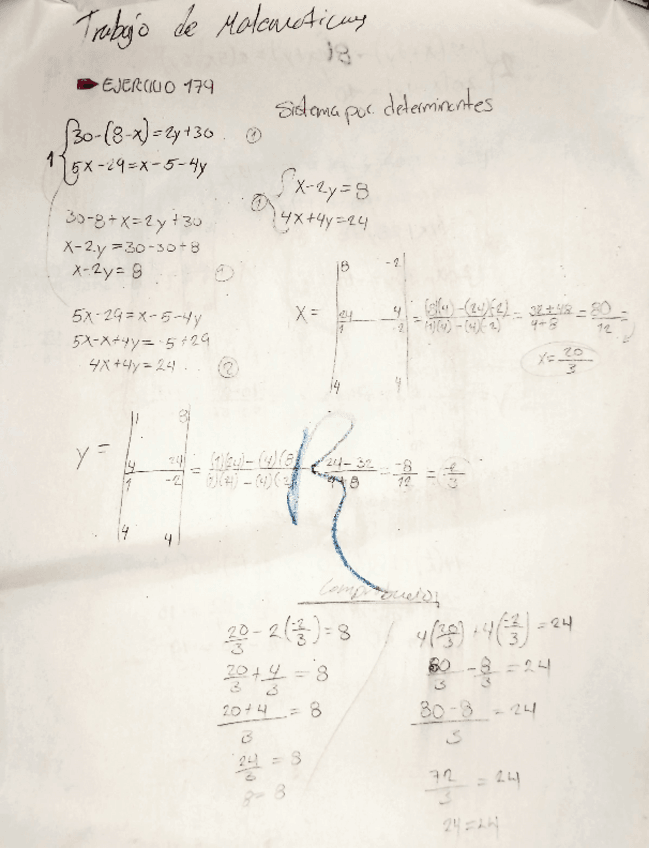 Trabajo de Matematicas
EJERCICIO 179
Sistema por determinantes
1 { 30-(8-x)=2y+30 ①
5x-29=x-5-4y
30-8+x=2y+30
x-2y=30-30+8
x-2y=8 ①
5x-29=x-5-4y
5x-x+4y=-5+29
4x+4y=24 ②
① { x-2y=8
4x+4y=24
x= |8 -2| |24 4| / |1 -2| |4 4| = (8)(4)-(24)(-2) / (1)(4)-(4)(-2) = 32+48 / 4+8 = 80/12 =
x=20/3
y= |1 8| |4 24| / |1 -2| |4 4| = (1)(24)-(4)(8) / (1)(4)-(4)(-2) 24-32 / 4+8 = -8/12 = -2/3
20/3 - 2(-2/3)=8
20/3 + 4/3 = 8
20+4 / 3 = 8
= 8
8=8
4(20/3)+4(-2/3)=24
80/3 - 8/3 = 24
80-8 / 3 = 24
72/3 = 24
24=24